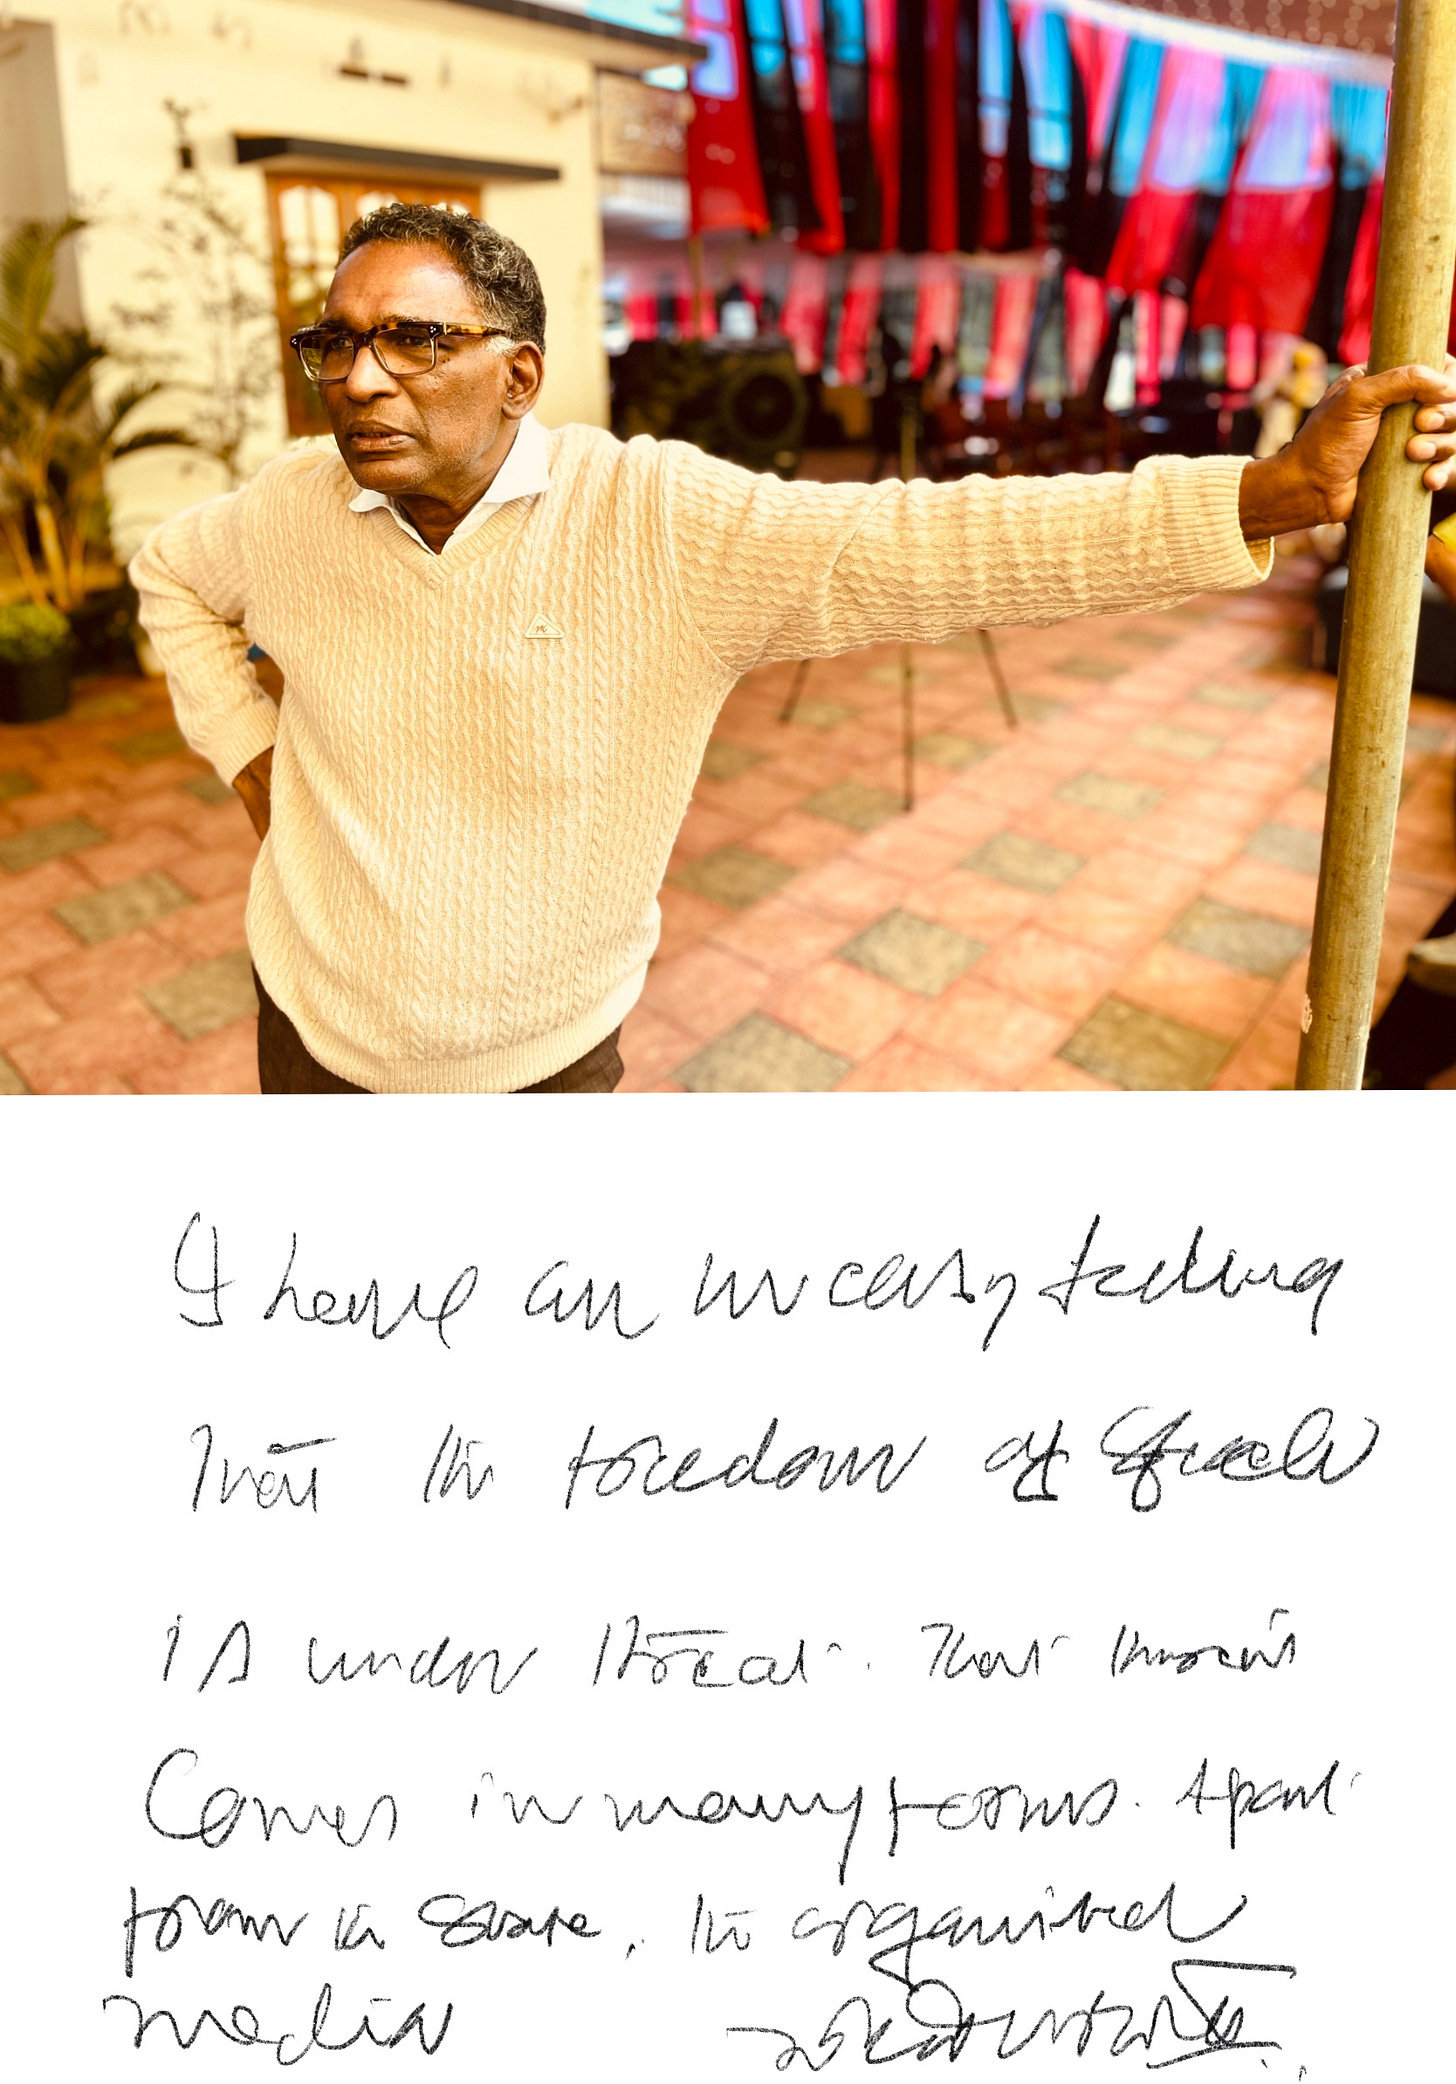 I have an uneasy feeling
that the freedom of speech
is under threat. That threat
Comes in many forms. Apart
from the state, the organised
media